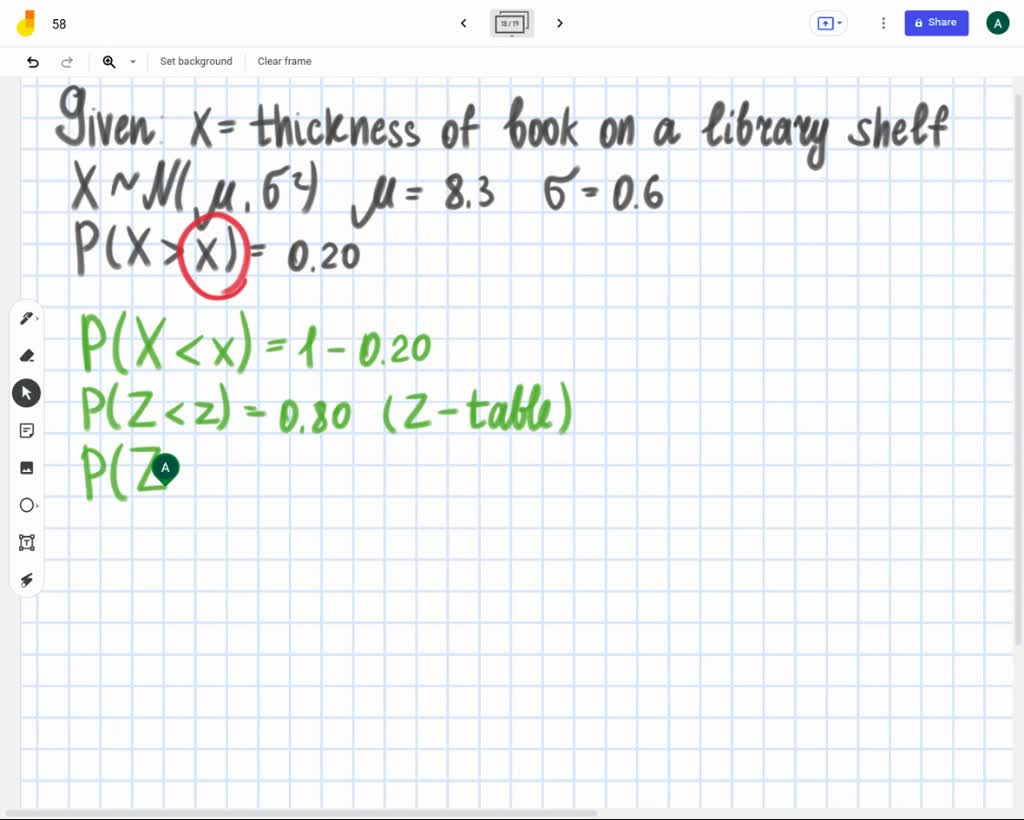 58
18 / 19
Share
A
Set background
Clear frame
Given: X = thickness of book on a library shelf
X ~ N(μ, σ²) μ = 8.3 σ = 0.6
P(X > x) = 0.20
P(X < x) = 1 - 0.20
P(Z < z) = 0.80 (Z-table)
P(Z
A